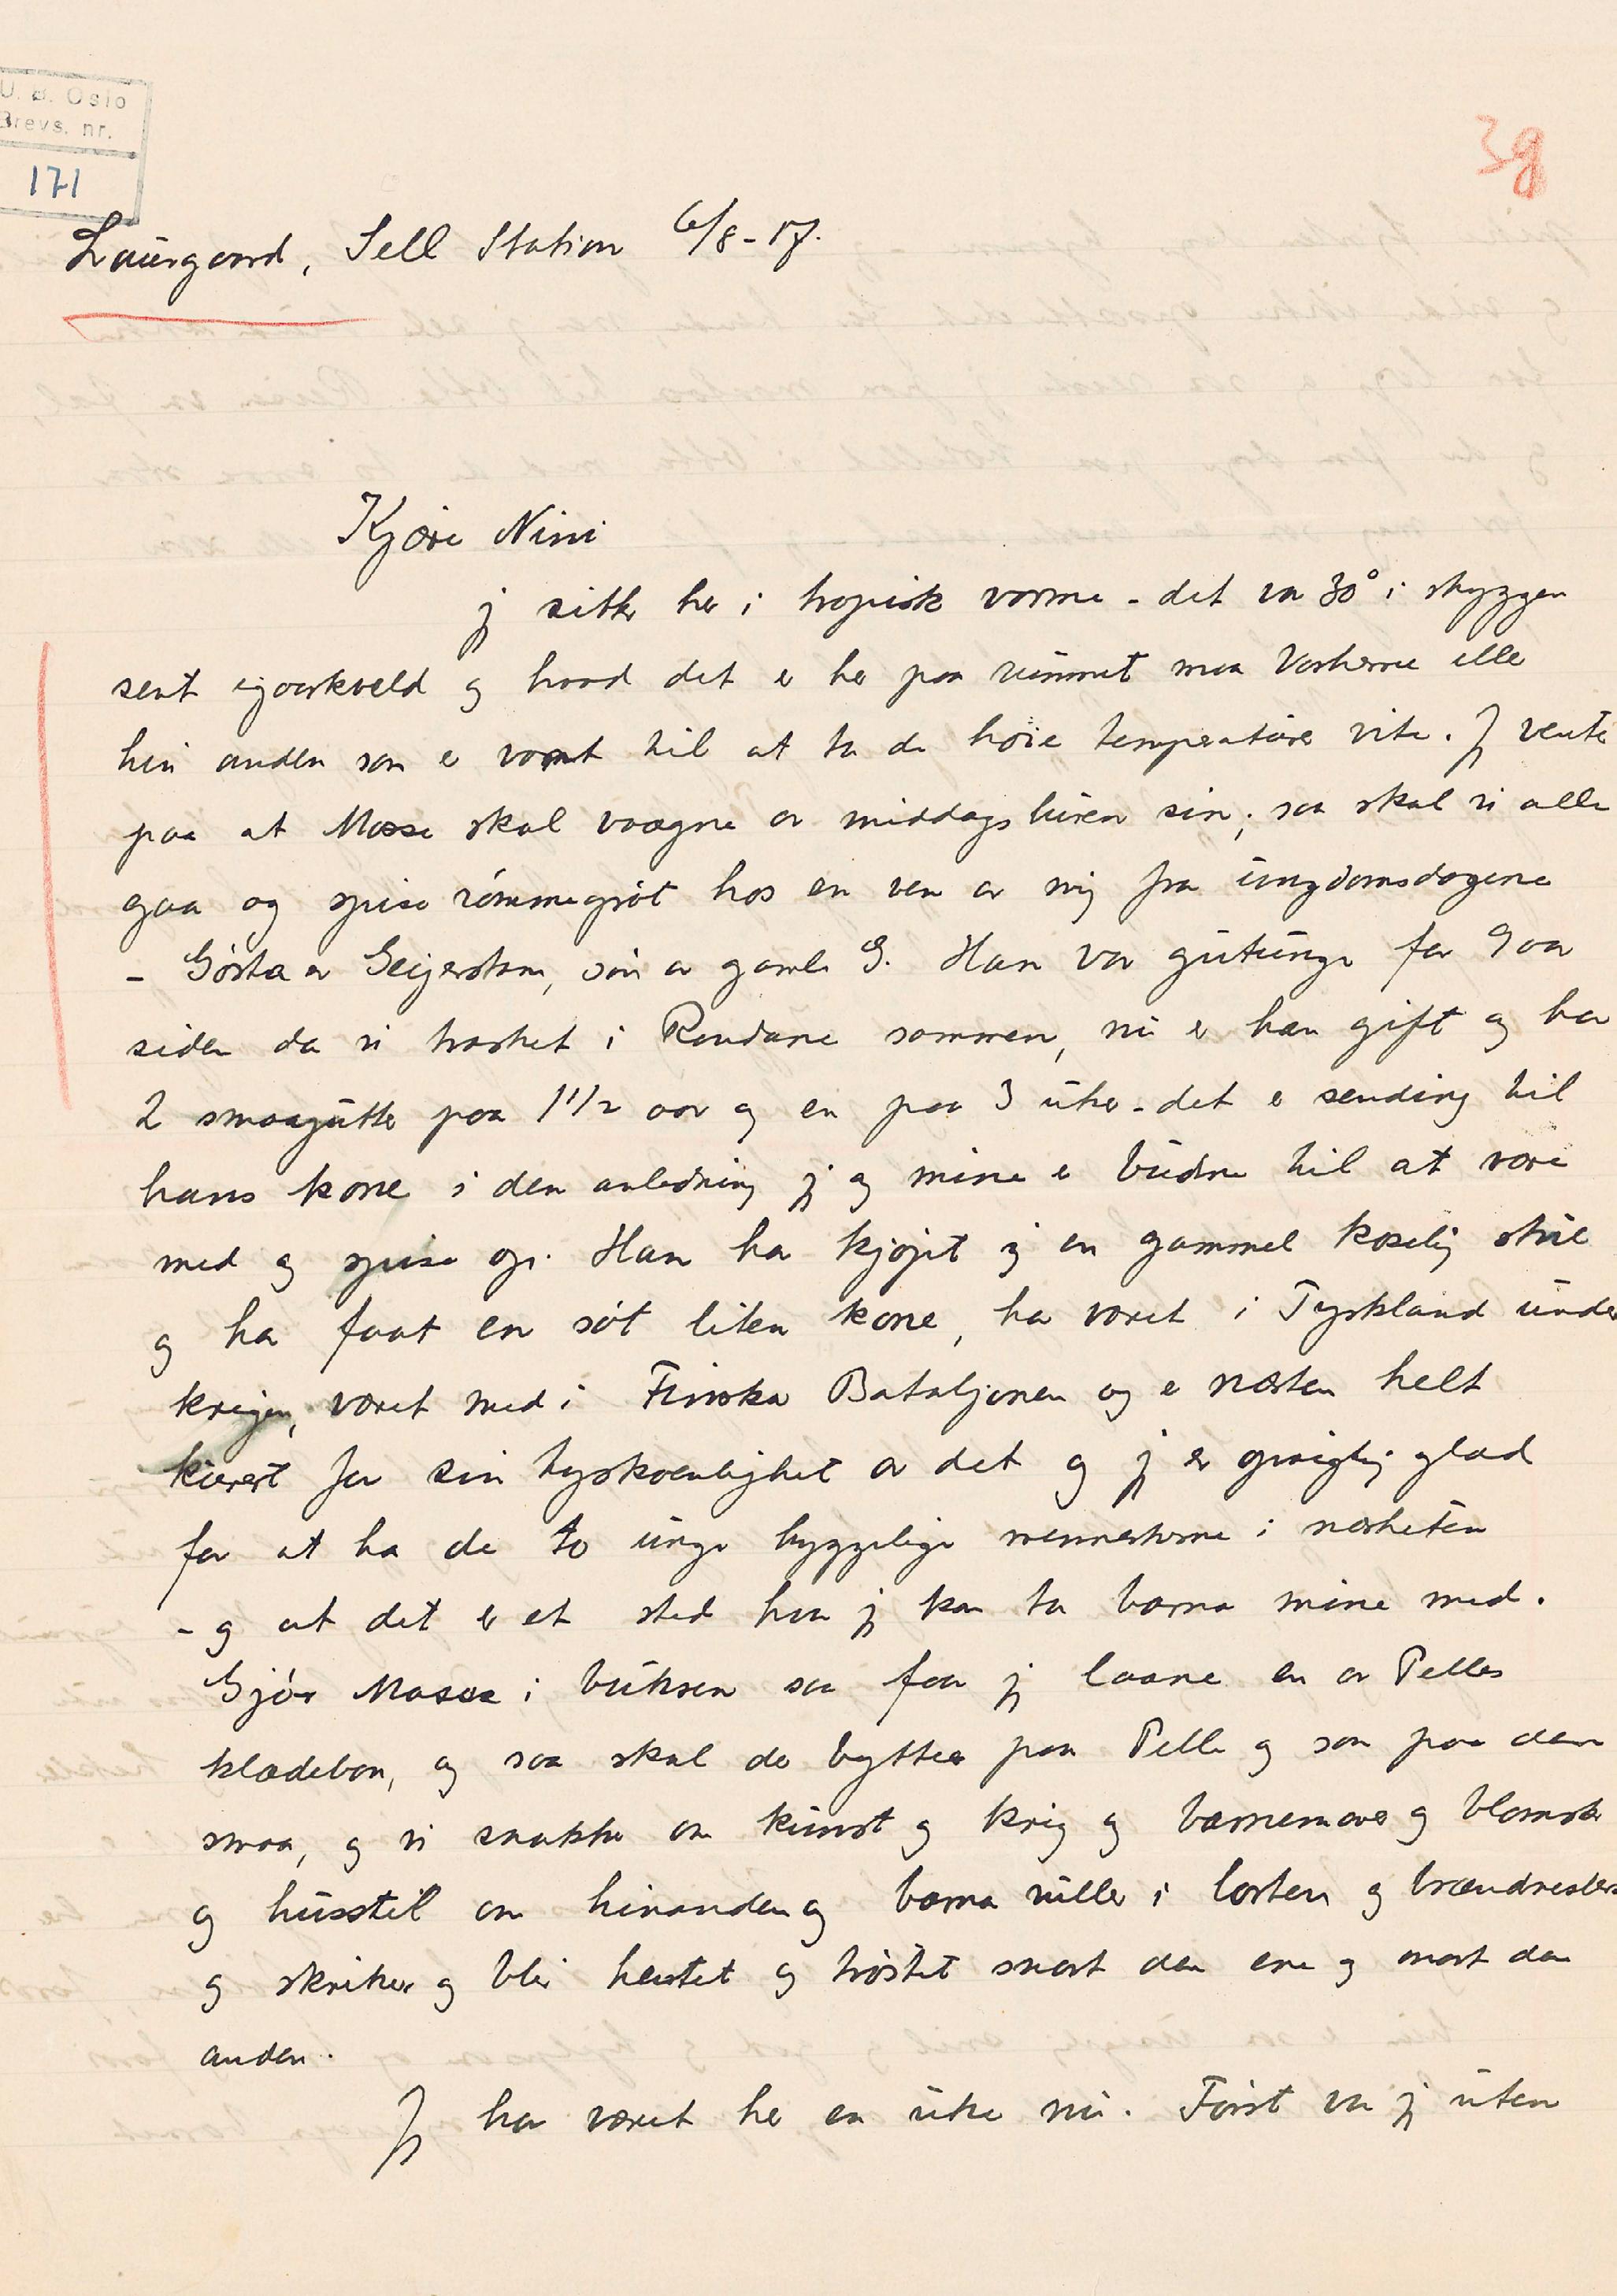 U. B. Oslo
Brevs. nr.
171
3g
Laurgaard, Sell Station 6/8-17.
Kjære Nini
jeg sitter her i tropisk varme - det var 30° i skyggen
sent igaarkveld og hvad det er her paa rummet maa Vorherre eller
hin anden som er vant til at ta de høie temperaturer vite. Jeg venter
paa at Mosse skal vaagne av middagsluren sin; saa skal vi alle
gaa og spise rømmegrøt hos en ven av mig fra ungdomsdagene
- Gösta av Geijerstam, søn av gamle G. Han var gutunge for 9 aar
siden da vi trasket i Rondane sammen, nu er han gift og har
2 smaagutter paa 1 1/2 aar og en paa 3 uker - det er sending til
hans kone i den anledning jeg og mine er budne til at være
med og spise op. Han har kjøpt sig en gammel koselig stue
og har faat en søt liten kone, har været i Tyskland under
krigen, været med i Finska Bataljonen og er næsten helt
kurert for sin tyskvenlighet av det og jeg er glad
for at ha de to unge hyggelige menneskerne i nærheten
- og at det er et sted hvor jeg kan ta barna mine med.
Gjør Mosse i buksen saa faar jeg laane en av Pelles
klædebon, og saa skal der byttes paa Pelle og saa paa den
smaa, og vi snakker om kunst og krig og barnemaver og blomster
og husstel om hinanden og barna ruller i lorten og brændnesler
og skriker og blir hentet og trøstet snart den ene og snart den
anden.
Jeg har været her en uke nu. Først var jeg uten